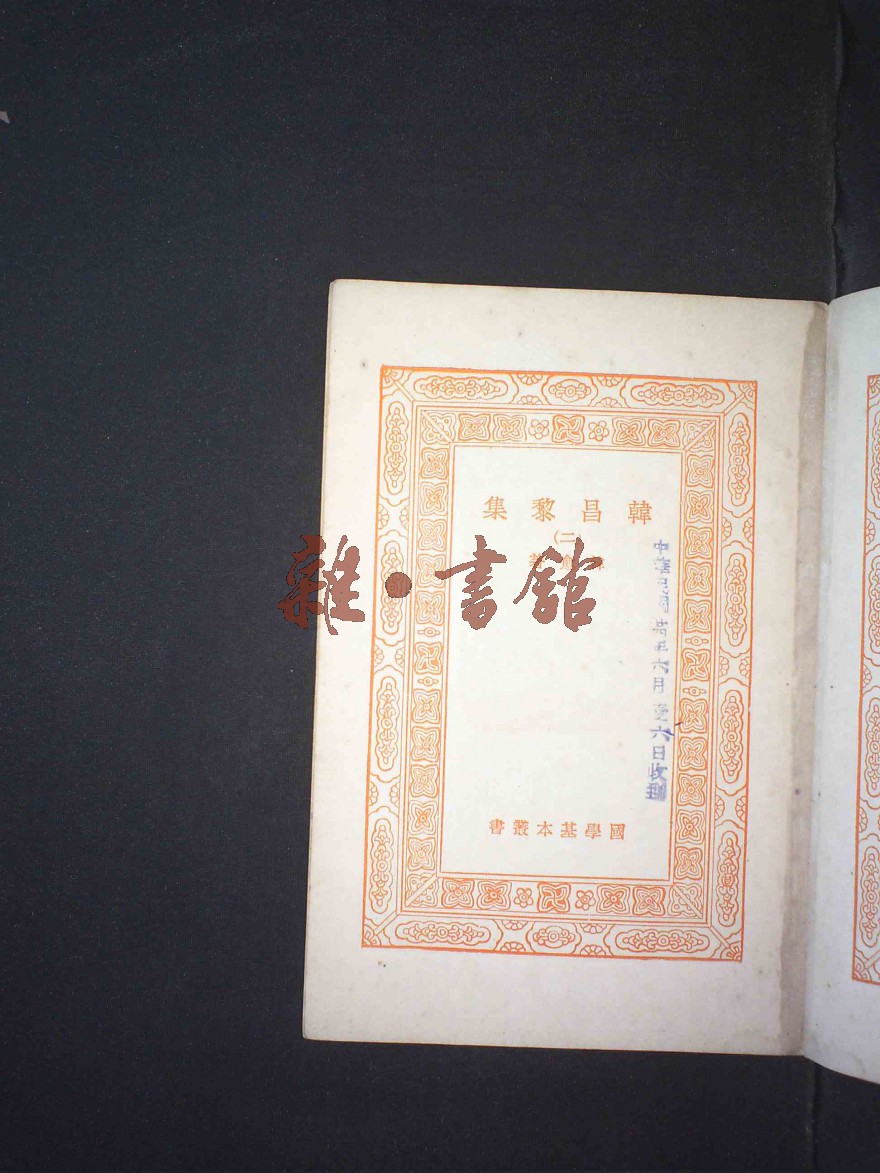 韓昌黎集
(二)
著
雜·書館
中華民國廿五年六月廿六日收到
國學基本叢書